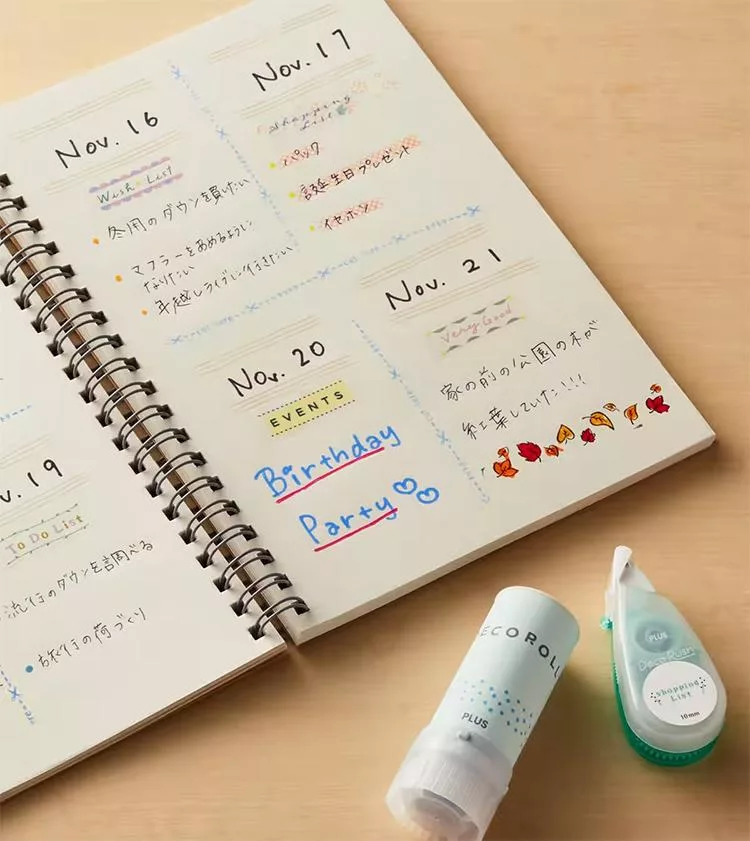 Nov. 16
Wish List
冬用のダウンを買いたい
マフラーをあめるように
なりたい
年越しライブに行きたい
Nov. 17
Shopping
List
パック
誕生日プレゼント
イヤホン
19
To Do List
流行のダウンを調べる
旅行の荷づくり
Nov. 20
EVENTS
Birthday
Party
Nov. 21
Very Good
家の前の公園の木が
紅葉していた!!!
ECOROLL
PLUS
PLUS
Deco Rush
Shopping
List
10mm